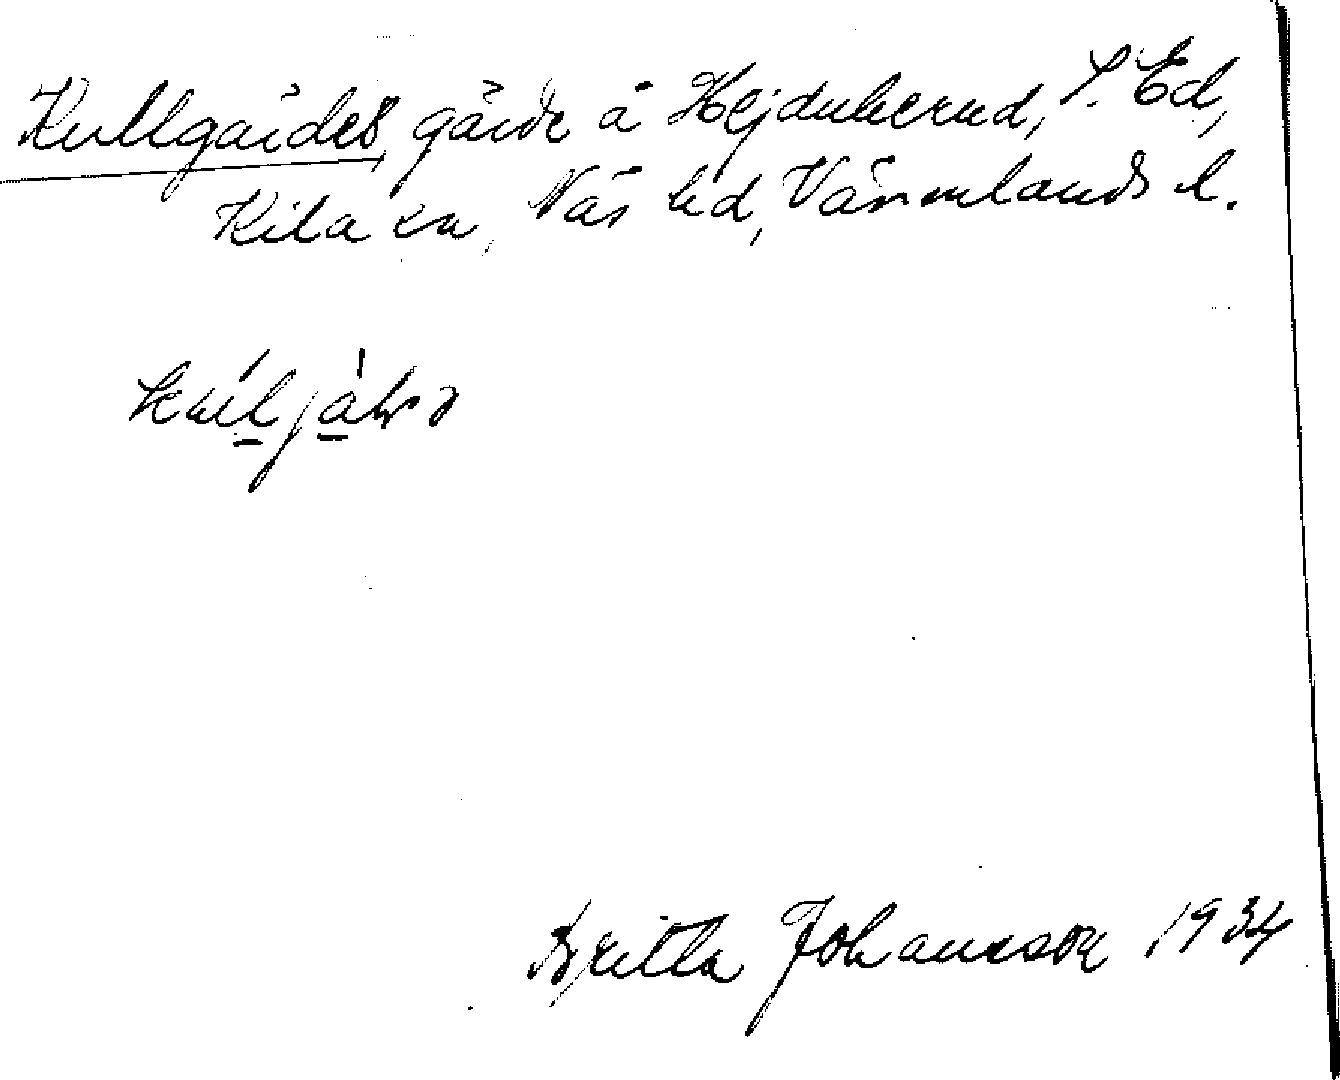 Kullgärdet, gärde å Hejdukerud, S. Ed,
Kila sn, Näs hd, Värmlands l.
Britta Johansson 1934